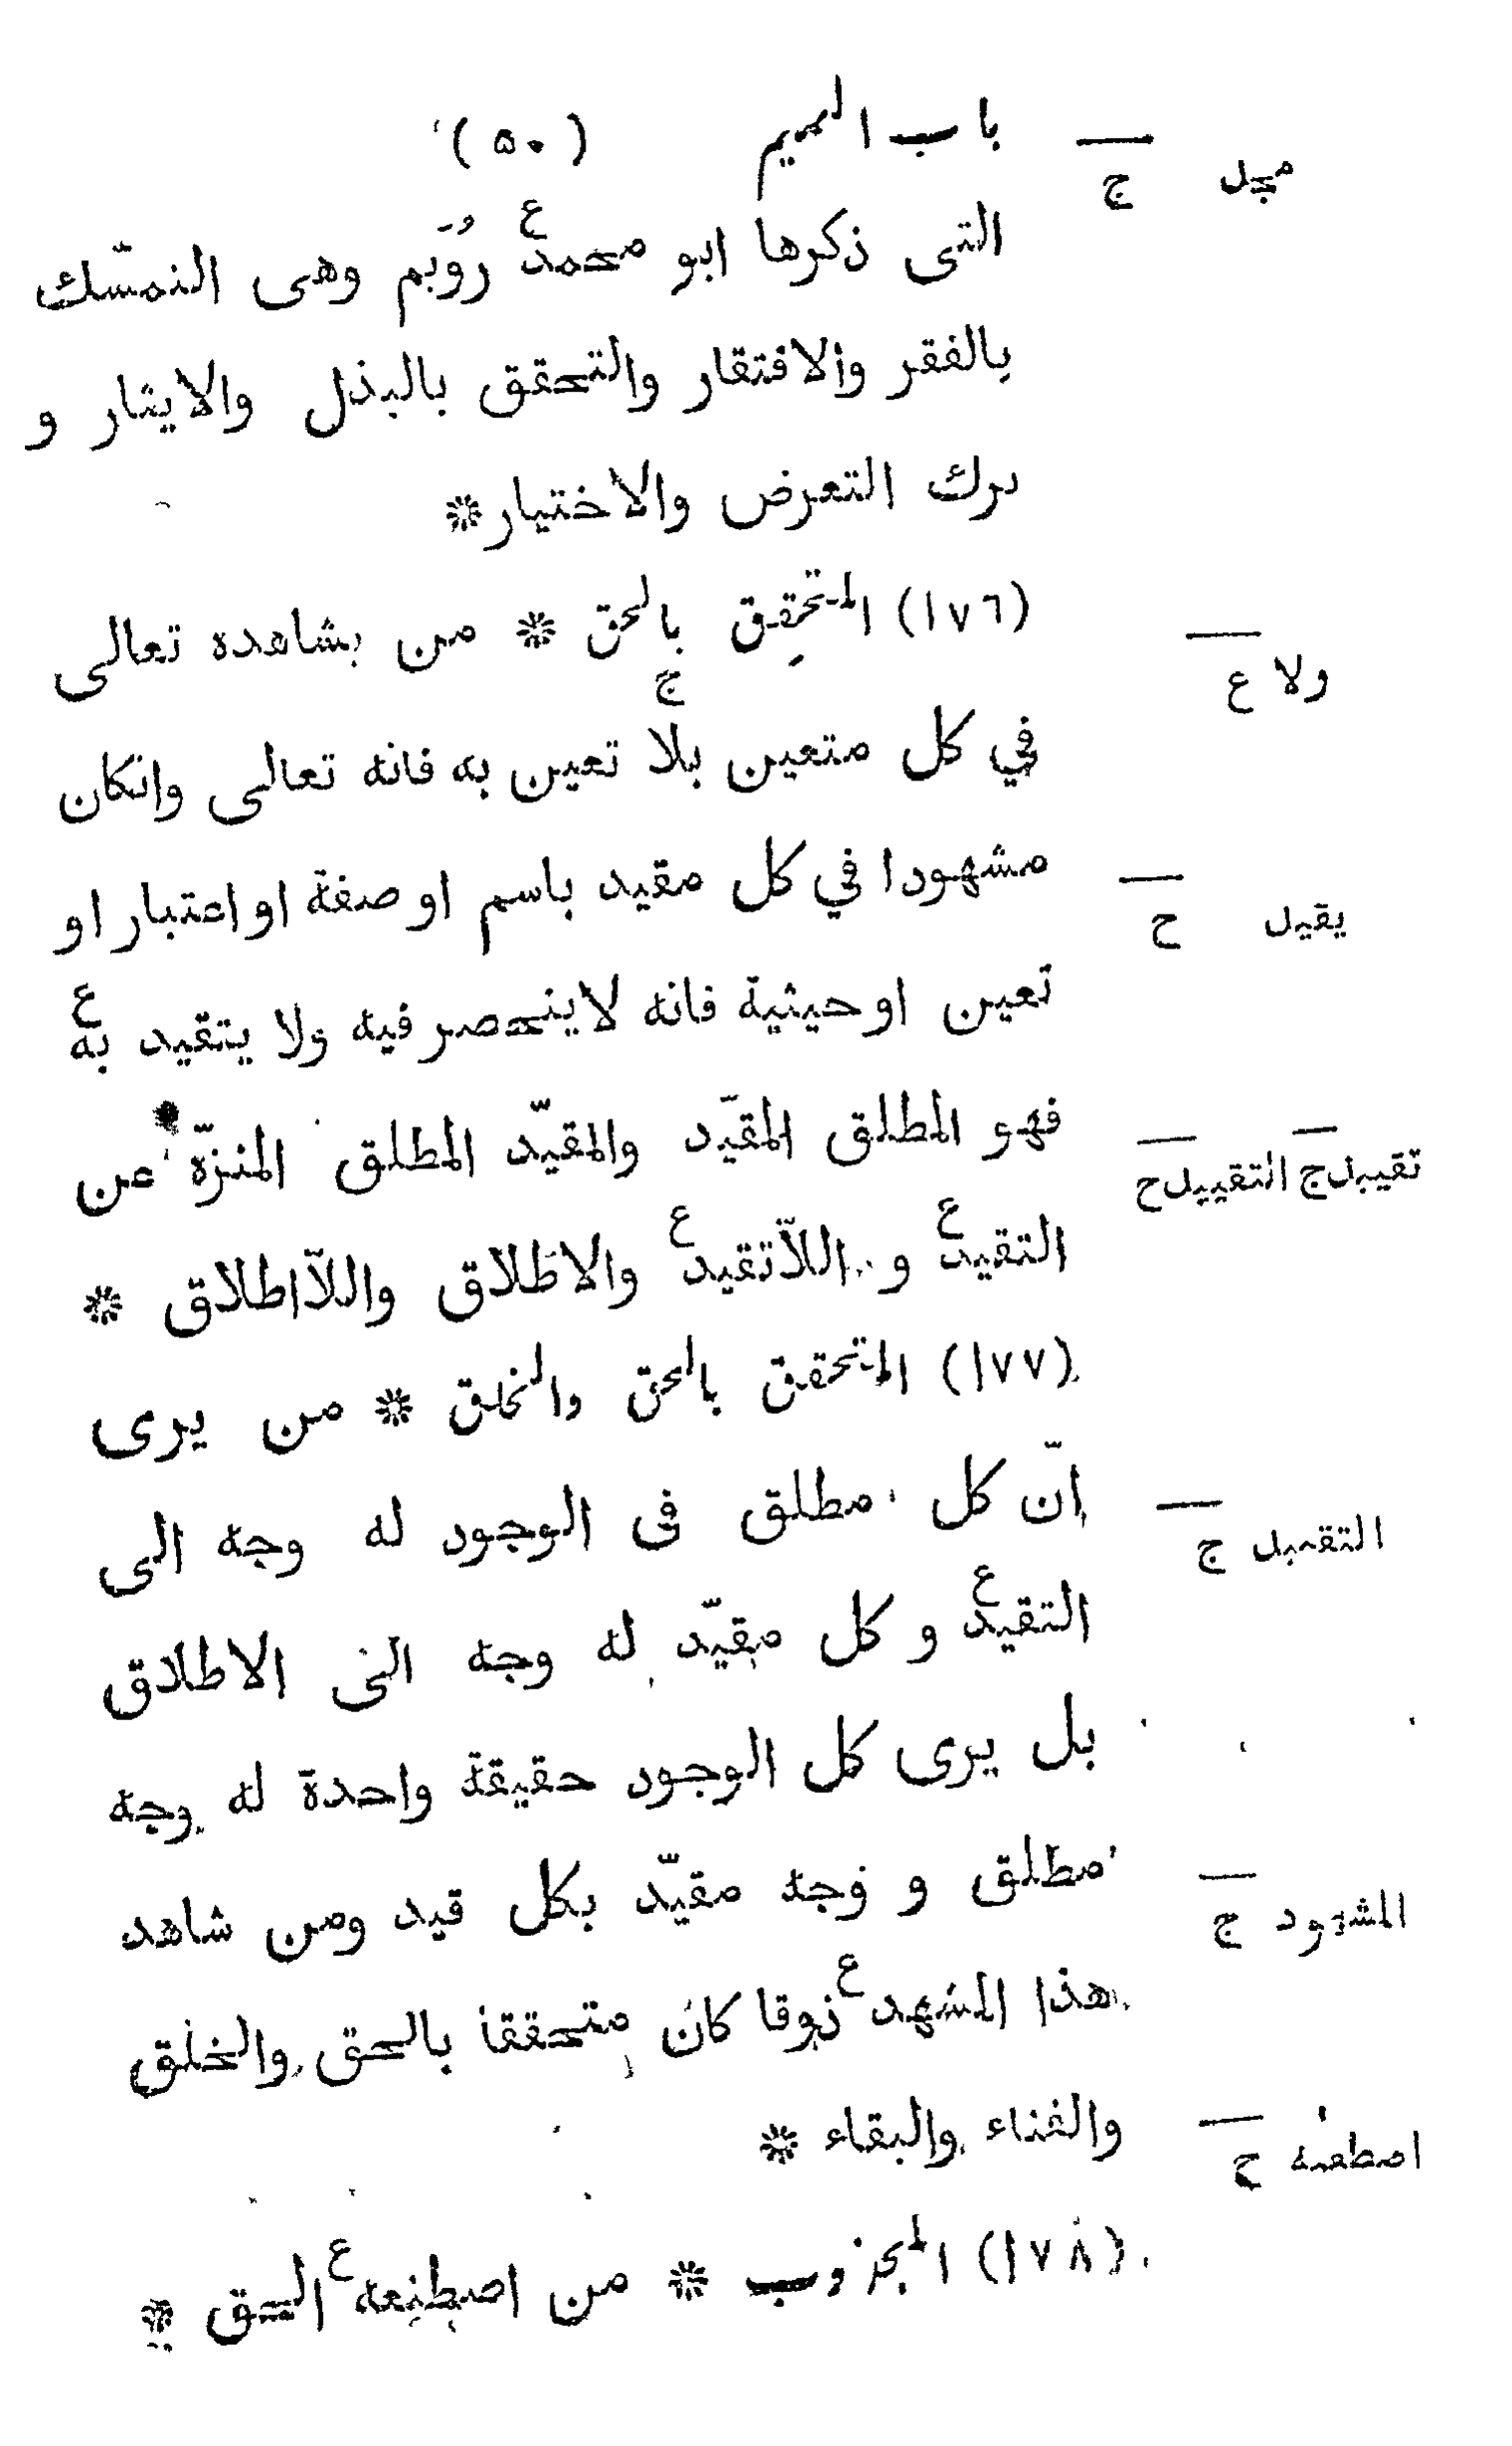 باب الميم (٥٠)
مجل ج
التى ذكرها ابو محمد ع رُوَيم وهى التمسّك
بالفقر والافتقار والتحقق بالبذل والايثار و
ترك التعرض والاختيار *
(١٧٦) المتحقِق بالحق * من يشاهده تعالى
ولا ع
في كل متعين بلا ج تعين به فانه تعالى وانكان
مشهودا في كل مقيد باسم او صفة او اعتبار او
يقيل ح
تعين او حيثية فانه لاينحصر فيه ولا يتقيد به ع
فهو المطلق المقيّد والمقيّد المطلق المنزّه عن
تقييدج التقييدح
التقيد ع و اللاّتقيد ع والاطلاق واللاّاطلاق *
(١٧٧) المتحقق بالحق والخلق * من يرى
انّ كل مطلق فى الوجود له وجه الى
التقييد ج
التقيد ع و كل مقيّد له وجه الى الاطلاق
بل يرى كل الوجود حقيقة واحدة له وجه
مطلق و وجه مقيّد بكل قيد ومن شاهد
المشهود ج
هذا المشهد ع ذوقا كان متحققا بالحق والخلق
والفناء والبقاء *
اصطفنه ح
(١٧٨) المجذوب * من اصطنعه ع الحق *